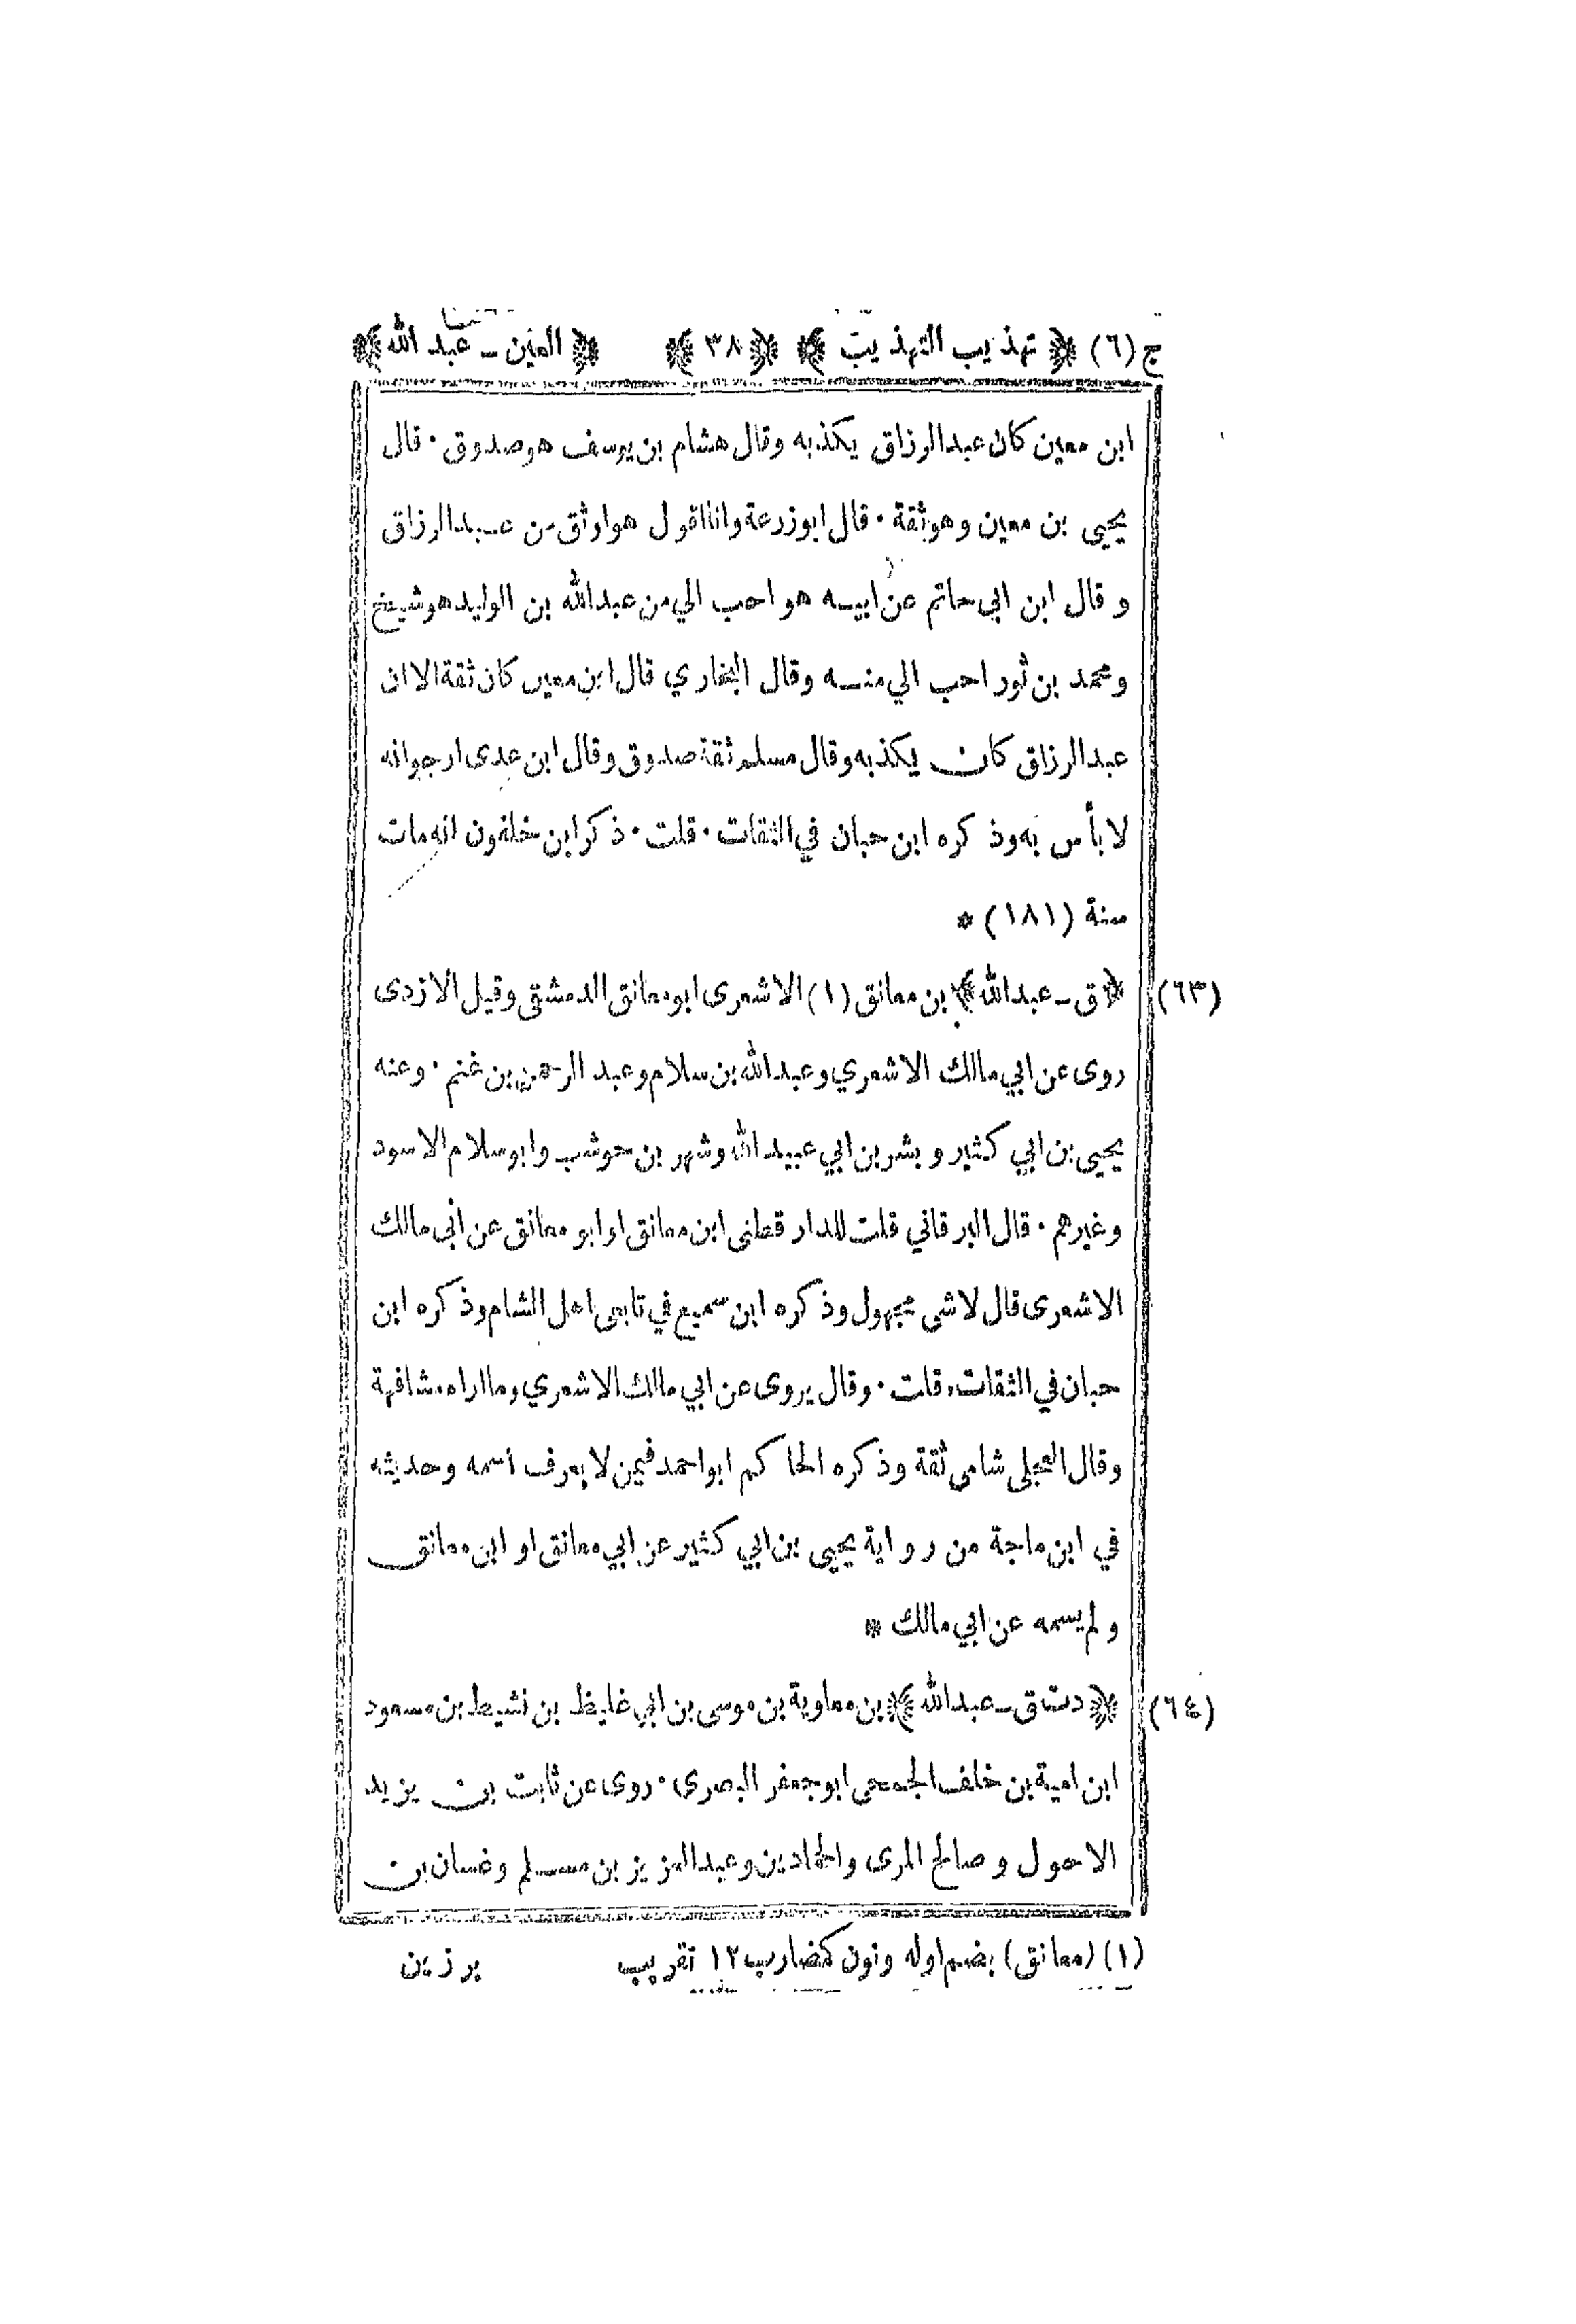 ج (٦) ﴿ تهذيب التهذيب ﴾ ﴿ ٣٨ ﴾ ﴿ العين ـ عبد الله ﴾
ابن معين كان عبدالرزاق يكذبه وقال هشام بن يوسف هو صدوق · قال
يحيى بن معين وهو ثقة · قال ابو زرعة وانا اقول هو اوثق من عبدالرزاق
و قال ابن ابي حاتم عن ابيه هو احب الي من عبدالله بن الوليد هو شيخ
ومحمد بن ثور احب الي منه وقال البخاري قال ابن معين كان ثقة الا ان
عبدالرزاق كان يكذبه وقال مسلم ثقة صدوق وقال ابن عدى ارجو انه
لا بأس به وذكره ابن حبان في الثقات · قلت · ذكر ابن خلفون انه مات
سنة (١٨١) *
(٦٣) ﴿ ق ـ عبدالله ﴾ بن معانق (١) الاشعرى ابو معانق الدمشقي وقيل الازدى
روى عن ابي مالك الاشعري وعبدالله بن سلام وعبد الرحمن بن غنم · وعنه
يحيى بن ابي كثير و بشر بن ابي عبيدالله وشهر بن حوشب وابو سلام الاسود
وغيرهم · قال البرقاني قلت للدار قطنى ابن معانق او ابو معانق عن ابي مالك
الاشعرى قال لاشى مجهول وذكره ابن سميع في تابعى اهل الشام وذكره ابن
حبان في الثقات · قلت · وقال يروى عن ابي مالك الاشعري وما اراه مشافهة
وقال العجلى شامى ثقة وذكره الحاكم ابو احمد فيمن لا يعرف اسمه وحديثه
في ابن ماجة من رواية يحيى بن ابي كثير عن ابي معانق او ابن معانق
و لم يسمه عن ابي مالك *
(٦٤) ﴿ دت ق ـ عبدالله ﴾ بن معاوية بن موسى بن ابي غليظ بن نشيط بن مسعود
ابن امية بن خلف الجمحى ابو جعفر البصرى · روى عن ثابت بن يزيد
الاحول و صالح المرى والحمادين وعبدالعزيز بن مسلم وغسان بن
(١) (معانق) بضم اوله ونون كمضارب ١٢ تقريب برزين